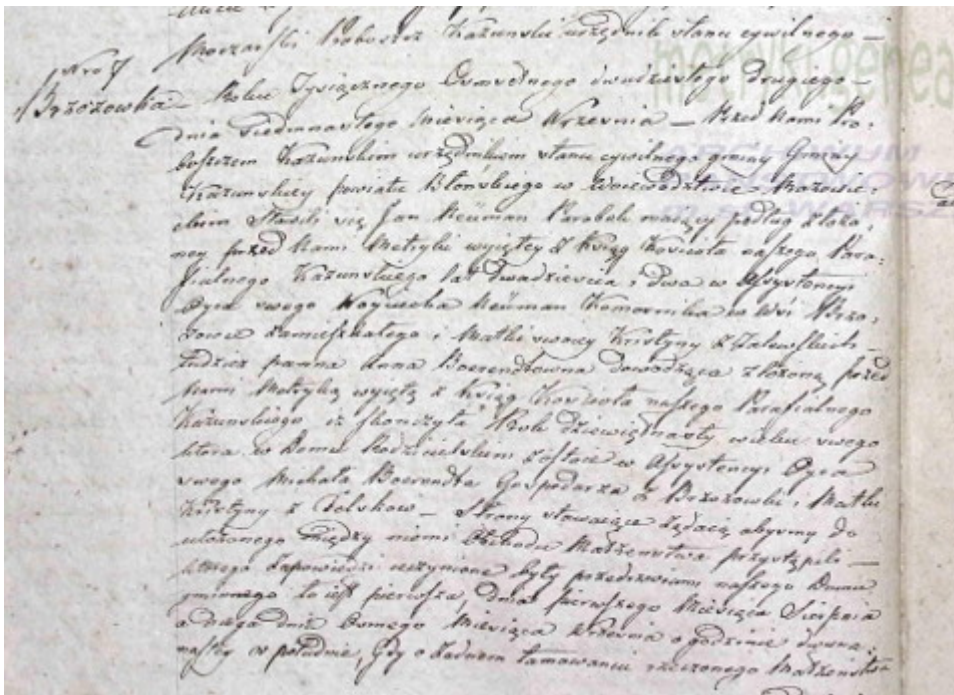 Moczarski Proboszcz Kazunski urzędnik stanu cywilnego —
Nro 7
Brzozowka — Roku Tysiącznego Osmsetnego dwudziestego drugiego —
dnia siedmnastego Miesiąca Września — Przed Nami Pro-
boszczem Kazunskim urzędnikiem stanu cywilnego gminy Gminy
Kazunskiey powiatu Błońskiego w Woiewodztwie Mazowie-
ckim Stawili się Jan Neüman Parobek maiący podług złożo-
ney przed Nami Metryki wyiętey z Ksiąg Kościoła naszego Para-
fialnego Kazunskiego lat dwadzieścia i dwa w Assystencyi
Oyca swego Woyciecha Neüman Komornika w Wsi Brzo-
zowce zamieszkałego i Matki swoiey Kristyny z Zalewskich
Tudzież panna Anna Boerendtowna dowodząca złożoną przed
Nami Metryką wyiętą z Ksiąg Kościoła naszego Parafialnego
Kazunskiego iż skończyła Rok dziewiętnasty wieku swego
ktora w Domu Rodzicielskim zostaie w Assystencyi Oyca
swego Michała Boerendta Gospodarza z Brzozowki i Matki
Kristyny z — Strony stawaiące żądaią abysmy do
ułożonego Między niemi Obchodu Małżeństwa przystąpili —
ktorego Zapowiedzi uczynione były przed drzwiami naszego Domu
gminnego to iest pierwsza dnia pierwszego Miesiąca Września
a druga dnia Osmego Miesiąca Września o godzinie dwuna-
stey w południe, Gdy o żadnem tamowaniu rzeczonego Małżeństwa
metryki.genea
ARCHIWUM
WARSZ